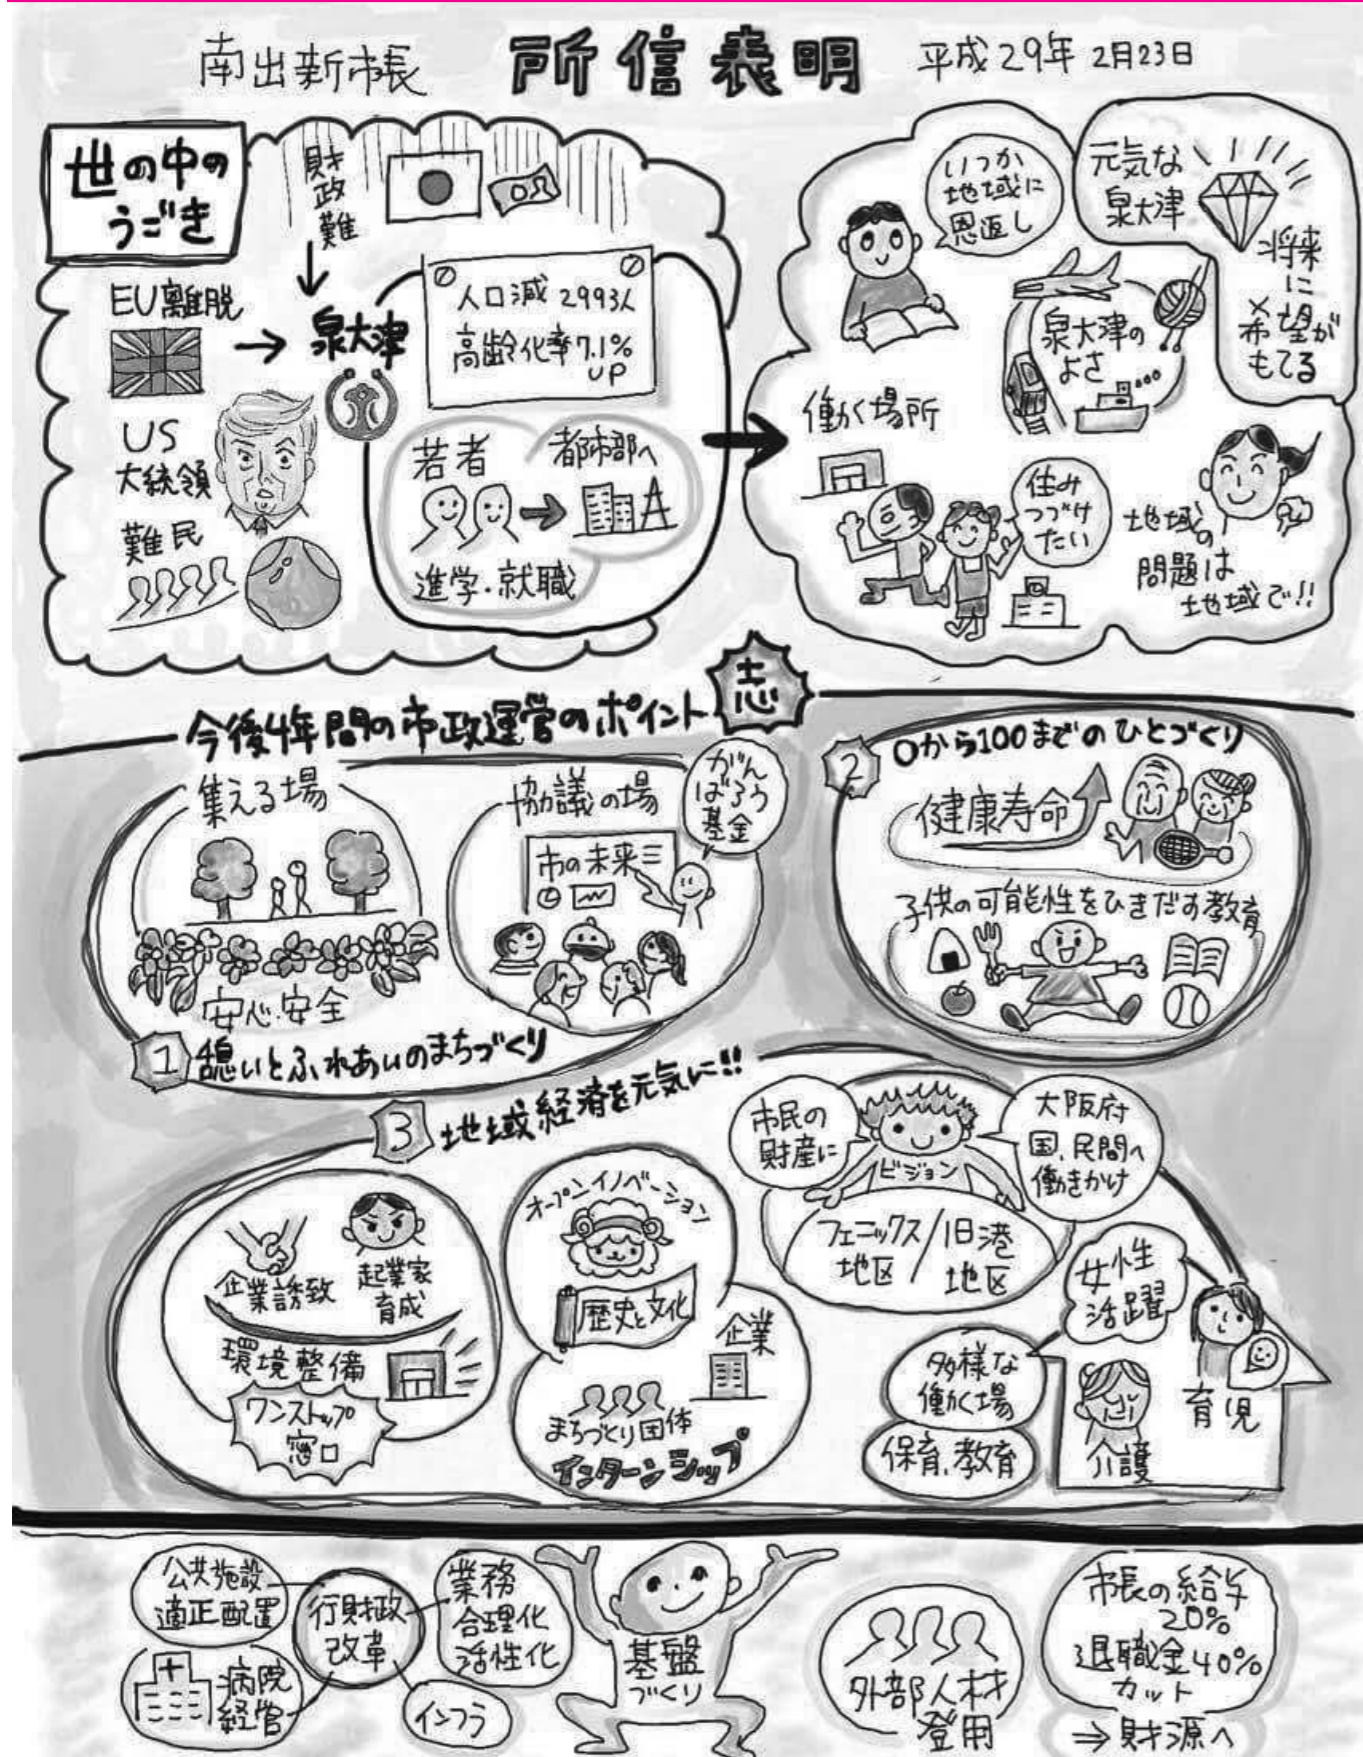 南出新市長
所信表明
平成29年 2月23日
世の中の
うごき
財政難
EU離脱
泉大津
US
大統領
難民
人口減 2993人
高齢化率7.1%
UP
若者
都市部へ
進学・就職
いつか
地域に
恩返し
元気な
泉大津
将来
に
希望が
もてる
泉大津の
よさ…
働く場所
住み
つづけ
たい
地域の
問題は
地域で!!
志
今後4年間の市政運営のポイント
集える場
安心・安全
協議の場
市の未来
がん
ばろう
基金
1 憩いとふれあいのまちづくり
2 0から100までのひとづくり
健康寿命
子供の可能性をひきだす教育
3 地域経済を元気に!!
企業誘致
起業家
育成
環境整備
ワンストップ
窓口
オープンイノベーション
歴史と文化
企業
まちづくり団体
インターンシップ
市民の
財産に
ビジョン
大阪府
国、民間へ
働きかけ
フェニックス/旧港
地区 地区
女性
活躍
多様な
働く場
保育、教育
育児
介護
公共施設
適正配置
行財政
改革
業務
合理化
活性化
病院
経営
インフラ
基盤
づくり
外部人材
登用
市長の給与
20%
退職金40%
カット
⇒財源へ